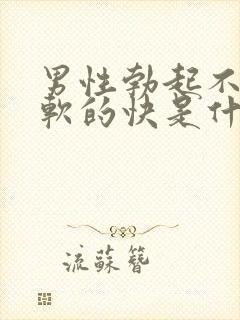 男性勃起不
軟的快是什
流蘇簪